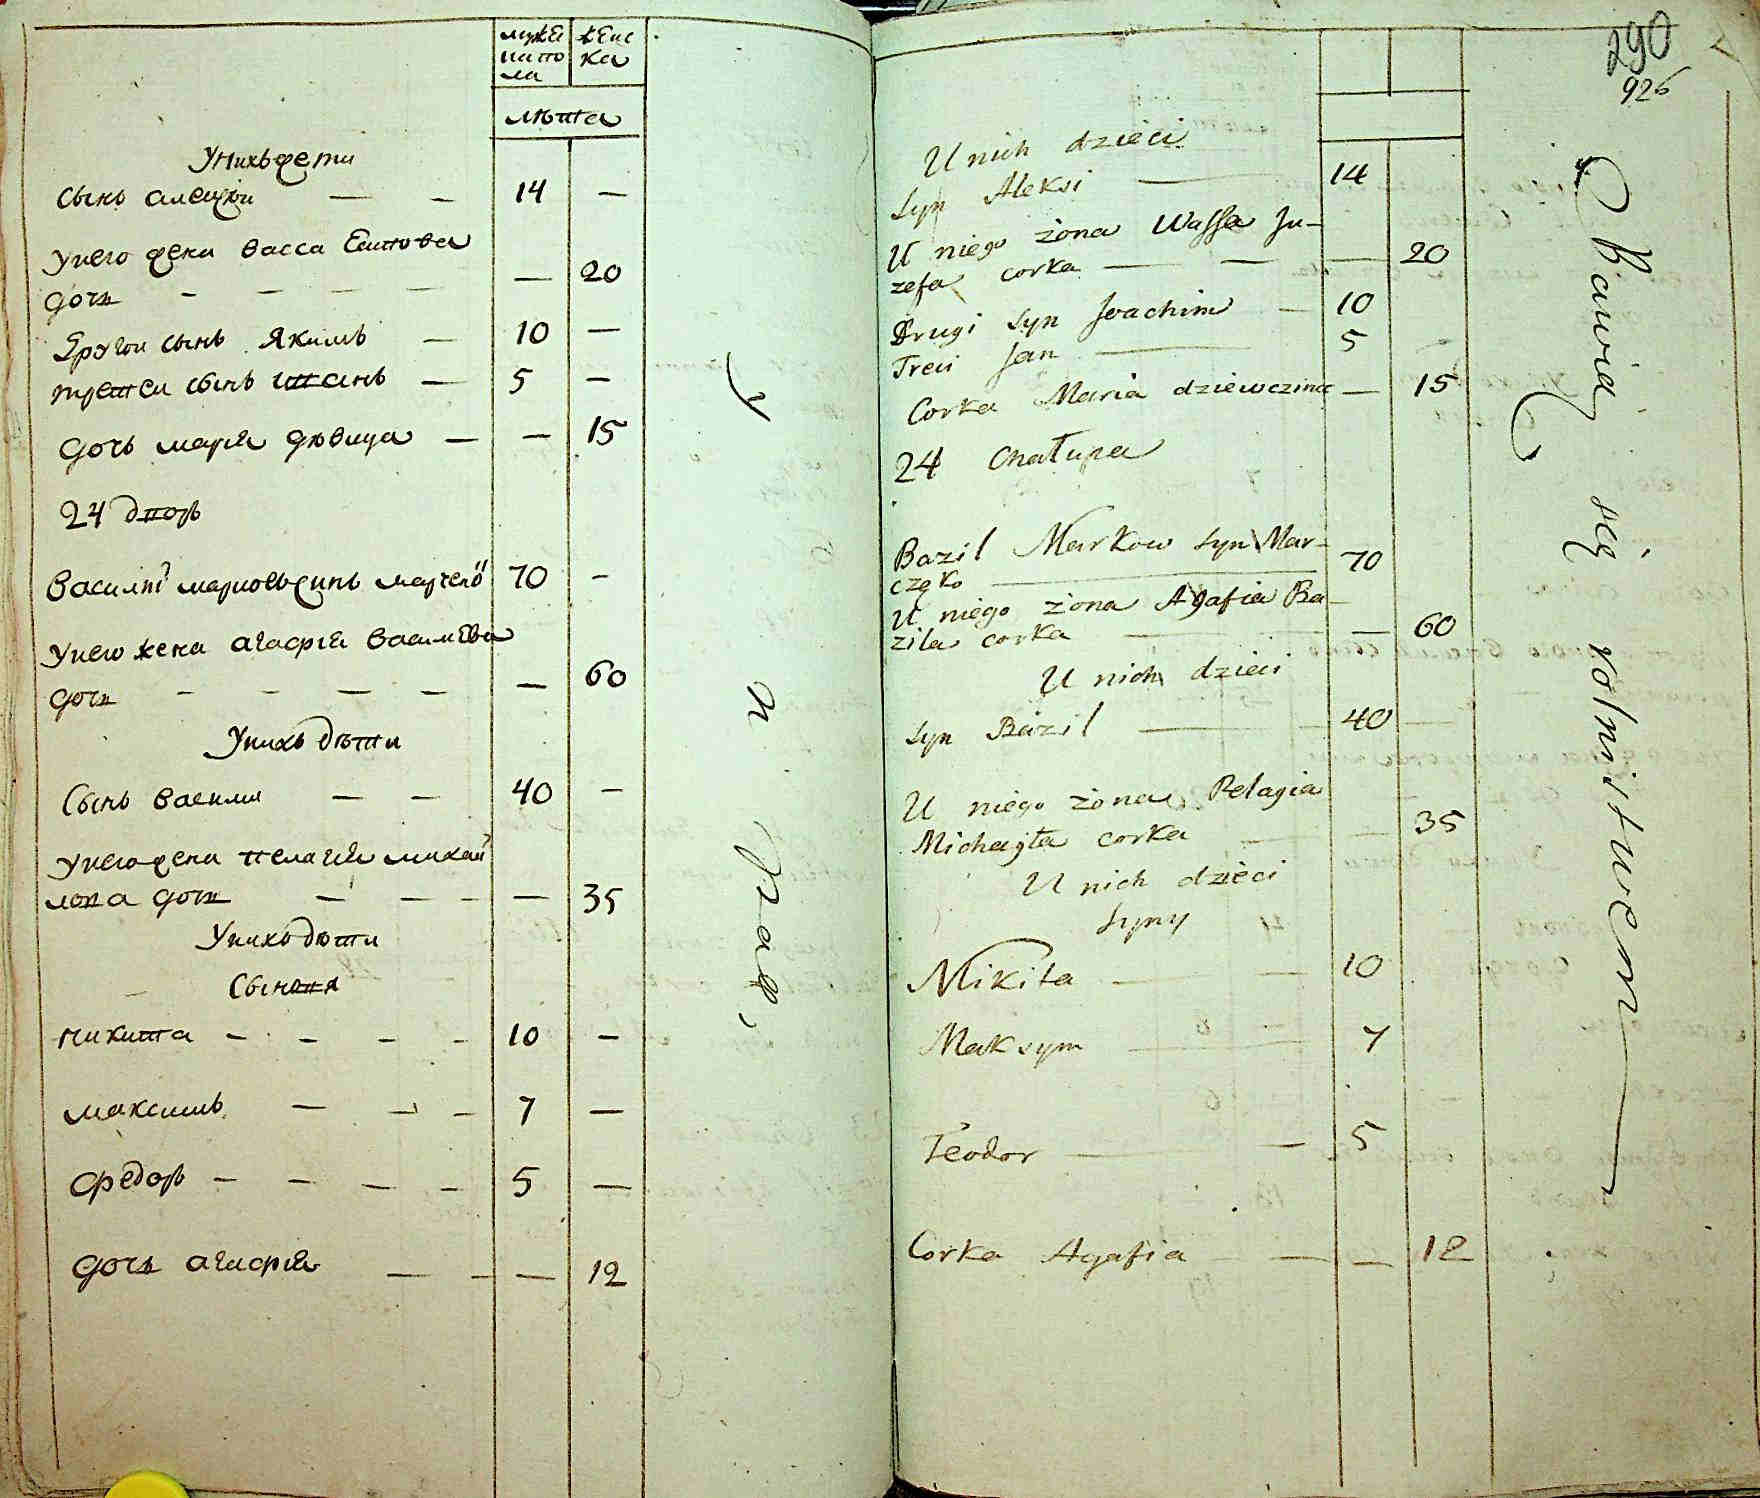 мужеска пола
женска
лѣта
Унихъ дети
Сынъ алеѯѣи — — 14 —
Унего жена васса Еспова
дочь — — — — — 20
Другои сынъ Якимъ — 10 —
третеи сынъ иванъ — 5 —
дочь марїя дѣвица — — 15
24 дворъ
василїи марковъ синъ 70 —
Унего жена агафїя василева
дочь — — — — — 60
Унихъ дѣти
Сынъ васили — — 40 —
Унего жена пелагия михаи
лова дочь — — — — 35
Унихъ дѣти
Сыновя
никита — — — — 10 —
максимъ — — — 7 —
федоръ — — — — 5 —
дочь агафїя — — — 12
290
926
U nich dzieci
Syn Aleksi — 14
U niego żona Wassa Ju-
zefa corka — — — 20
Drugi Syn Joachim — 10
Treci Jan — 5
Corka Maria dziewczina — 15
24 Chałupa
Bazil Markow Syn Mar-
częko — 70
U niego żona Agafia Ba-
zila corka — — 60
U nich dzieci
Syn Bazil — 40
U niego żona Pelagia
Michayła corka — — 35
U nich dzieci
Syny
Mikita — — 10
Maksym — 7
Teodor — — 5
Corka Agafia — — 12
Bawią się rolnistwem